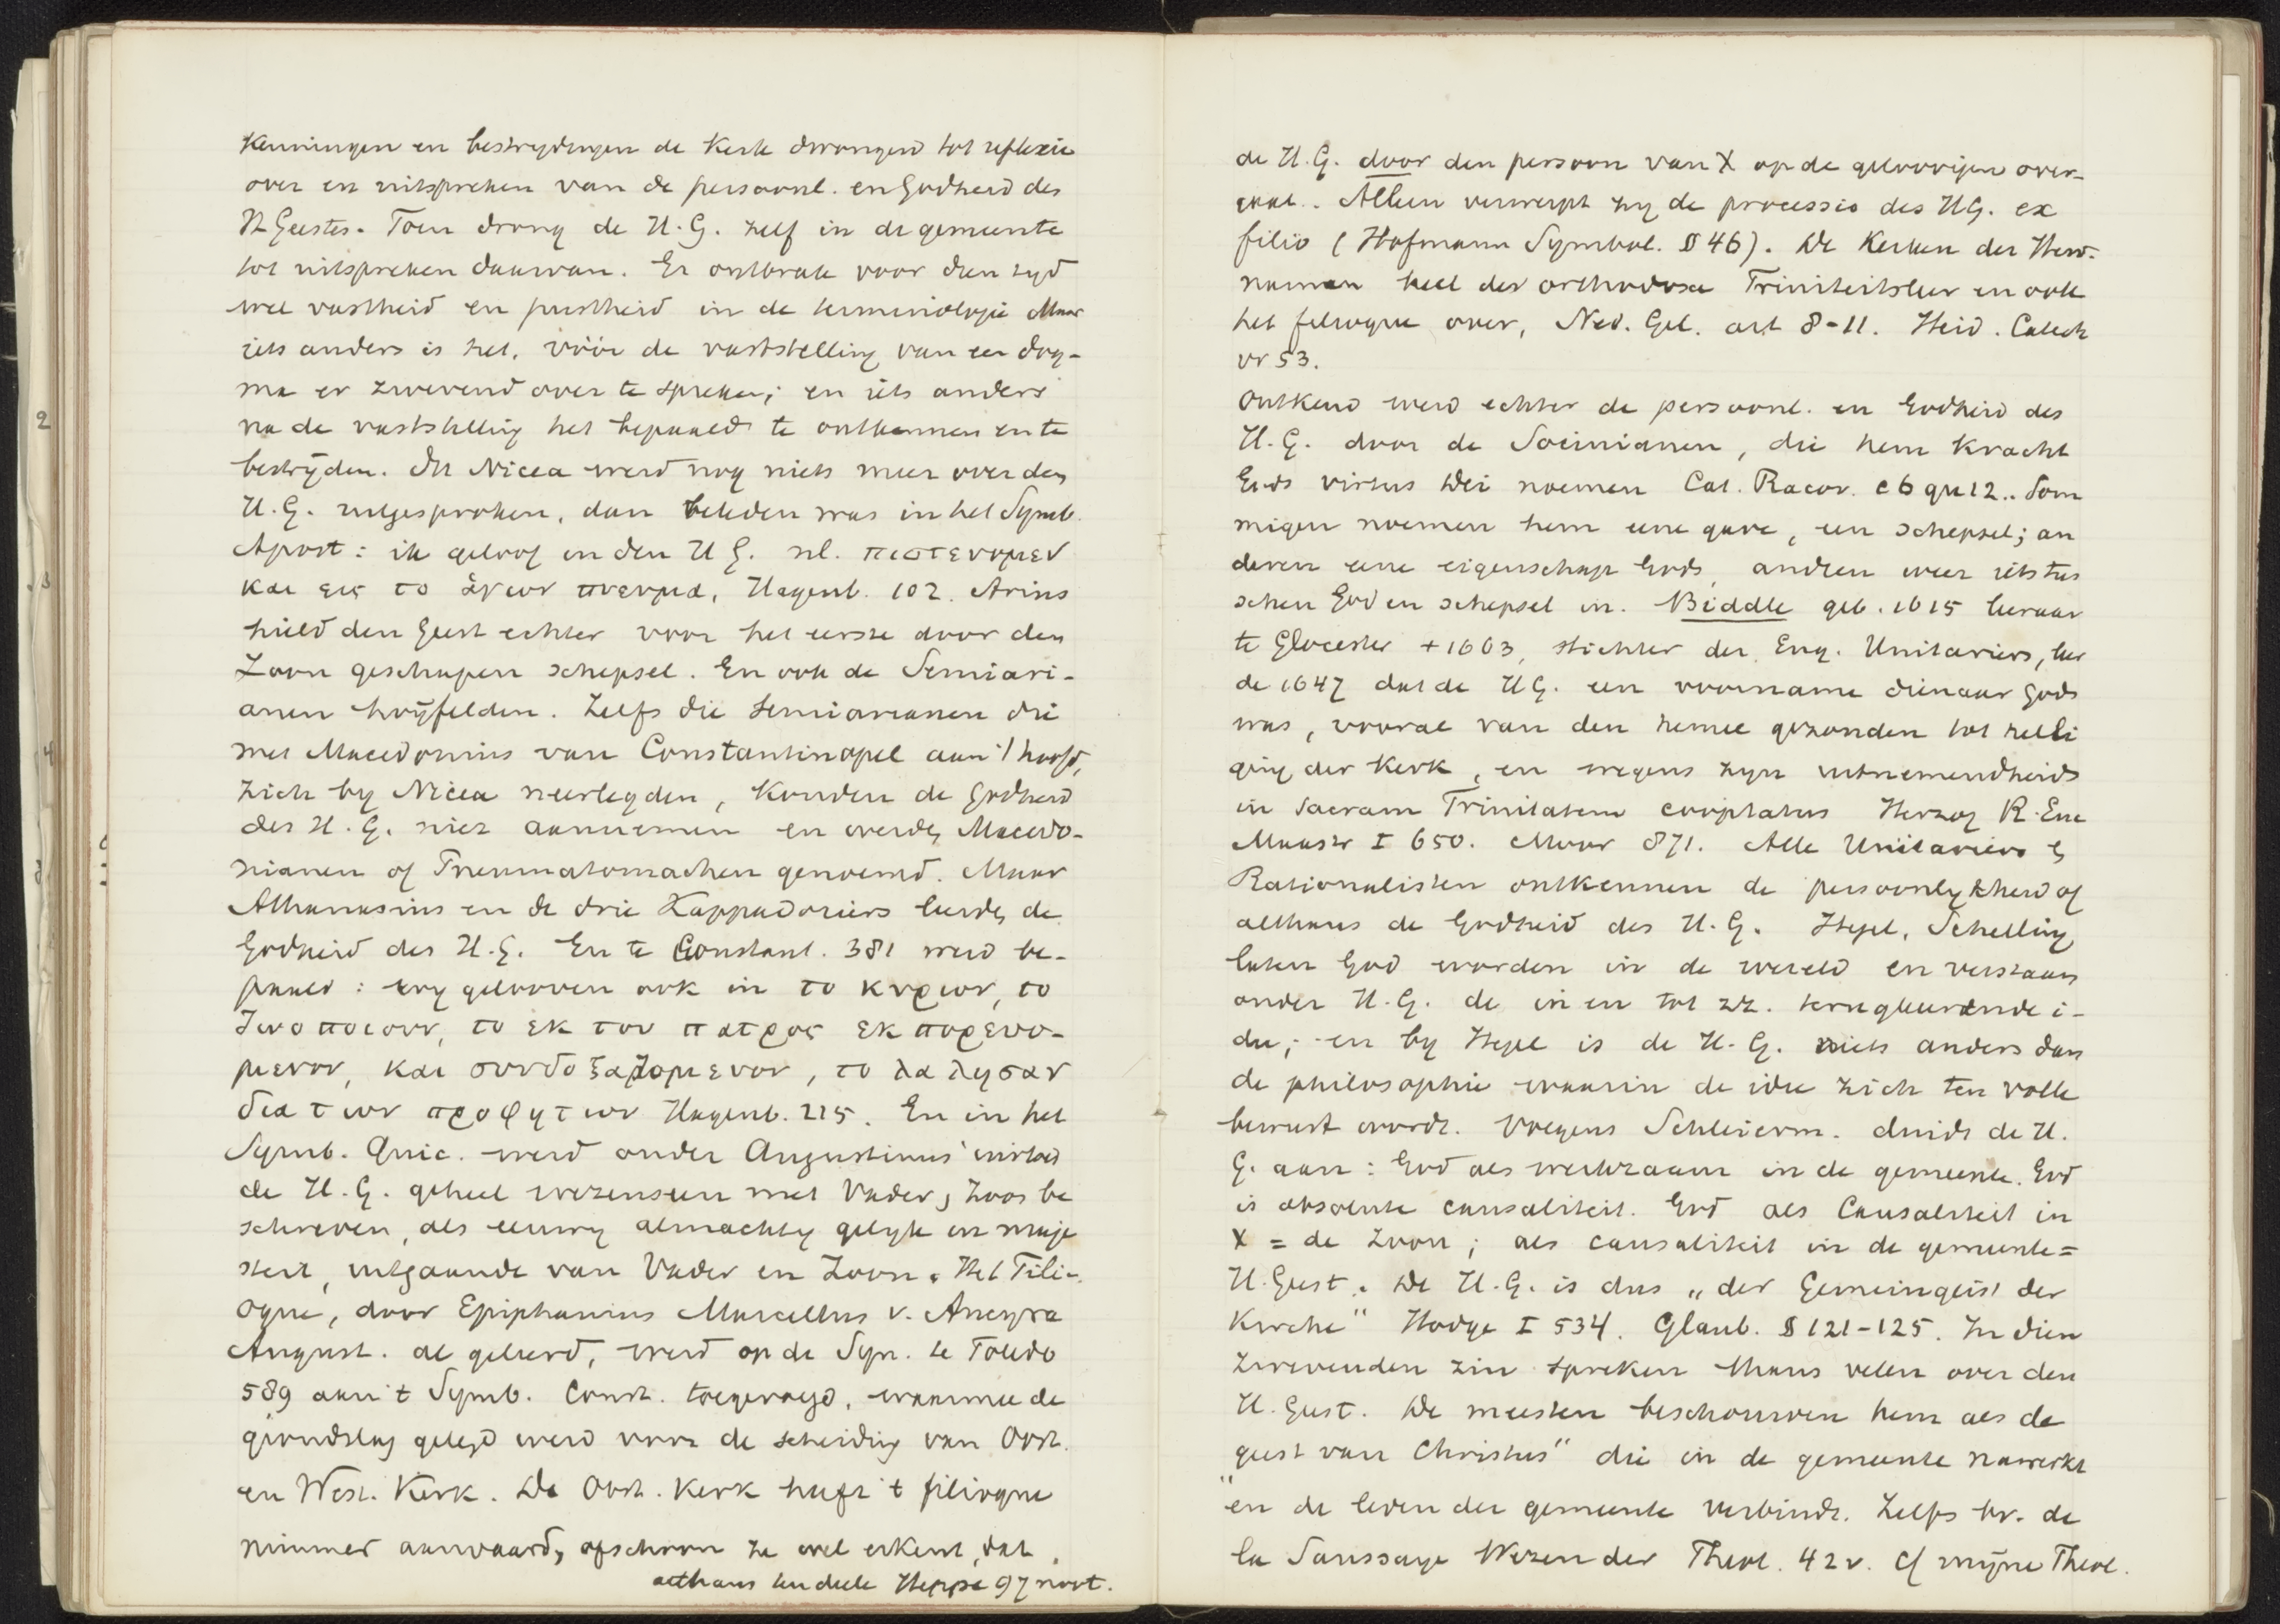 kenningen en bestrydingen de Kerk drongen tot reflexie
over en uitspreken van de persoonl. en Godheid des
H Geestes. Toen drong de H.G. zelf in de gemeente
tot uitspreken daarvan. Er ontbrak voor dien tyd
wel vastheid en juistheid in de terminologie Maar
iets anders is het, vóór de vaststelling van een dog-
ma er zwevend over te spreken; en iets anders
na de vaststelling het bepaald te ontkennen en te
bestrijden. In Nicea werd nog niets meer over den
H.G. uitgesproken, dan beleden was in het Symb.
Apost: ik geloof in den H G. nl. πιστευομεν
και εις το ἁγιον πνευμα, Hagenb. 102. Arius
hield den Geest echter voor het eerste door den
Zoon geschapen schepsel. En ook de Semiari-
anen twijfelden. Zelfs die semiarianen die
met Macedonius van Constantinopel aan 't hoofd,
zich by Nicea neerlegden, konden de Godheid
des H.G. niet aannemen en werden Macedo-
nianen of Pneumatomachen genoemd. Maar
Athanasius en de drie Kappadociers leerden de
Godheid des H.G. En te Constant. 381 werd be-
paald: wy gelooven ook in το κυριον, το
ζωοποιουν, το εκ του πατρος εκπορευο-
μενον, και συνδοξαζομενον, το λαλησαν
δια των προφητων Hagenb. 215. En in het
Symb. Quic. werd onder Augustinus' invloed
de H.G. geheel wezenseen met Vader, Zoon be
schreven, als eeuwig almachtig gelyk in maje
steit, uitgaande van Vader en Zoon. Het Fili-
oque, door Epiphanius Marcellus v. Ancyra
August. al geleerd, werd op de Syn. te Toledo
589 aan 't Symb. Const. toegevoegd, waarmee de
grondslag gelegd werd voor de scheiding van Oost.
en West. Kerk. De Oost. Kerk heeft 't filioque
nimmer aanvaard, ofschoon ze wel erkent, dat
althans ten deele Heppe 97 noot.
de H.G. door den persoon van X op de geloovigen over-
gaat. Alleen verwerpt zy de processio des HG. ex
filio (Hofmann Symbol. § 46). De Kerken der Herv.
namen heel der orthodoxe Triniteitsleer en ook
het filioque over, Ned. Gel. art 8-11. Heid. Catech
vr 53.
Ontkend werd echter de persoonl. en Godheid des
H.G. door de Socinianen, die hem kracht
Gods virtus Dei noemen Cat. Racov. c 6 qu 12.. Som
migen noemen hem eene gave, een schepsel; an
deren eene eigenschap Gods, andren weer iets tus
schen God en schepsel in. Biddle geb. 1615 leeraar
te Glocester + 1663, stichter der Eng. Unitariers, leer
de 1647 dat de HG. een voorname dienaar Gods
was, vooral van den hemel gezonden tot heili
ging der Kerk, en wegens zyn uitnemendheid
in sacram Trinitatem cooptatus Herzog R. Enc
Maastr I 650. Moor 871. Alle Unitariers &
Rationalisten ontkennen de persoonlykheid of
althans de Godheid des H.G. Hegel, Schelling
laten God worden in de wereld en verstaan
onder H.G. de in en tot zz. terugkeerende i-
dee; en by Hegel is de H.G. niets anders dan
de philosophie waarin de idee zich ten volle
bewust wordt. Volgens Schleierm. duidt de H.
G. aan: God als werkzaam in de gemeente. God
is absolute causaliteit. God als Causaliteit in
X = de Zoon; als causaliteit in de gemeente =
H. Geest. De H.G. is dus „der Gemeingeist der
Kirche" Hodge I 534. Glaub. § 121-125. In dien
zwevenden zin spreken thans velen over den
H. Geest. De meesten beschouwen hem als de
„geest van Christus" die in de gemeente nawerkt
en de leden der gemeente verbindt. Zelfs hr. de
la Saussaye Wezen der Theol. 42 v. Cf mijne Theol.
2
3
4